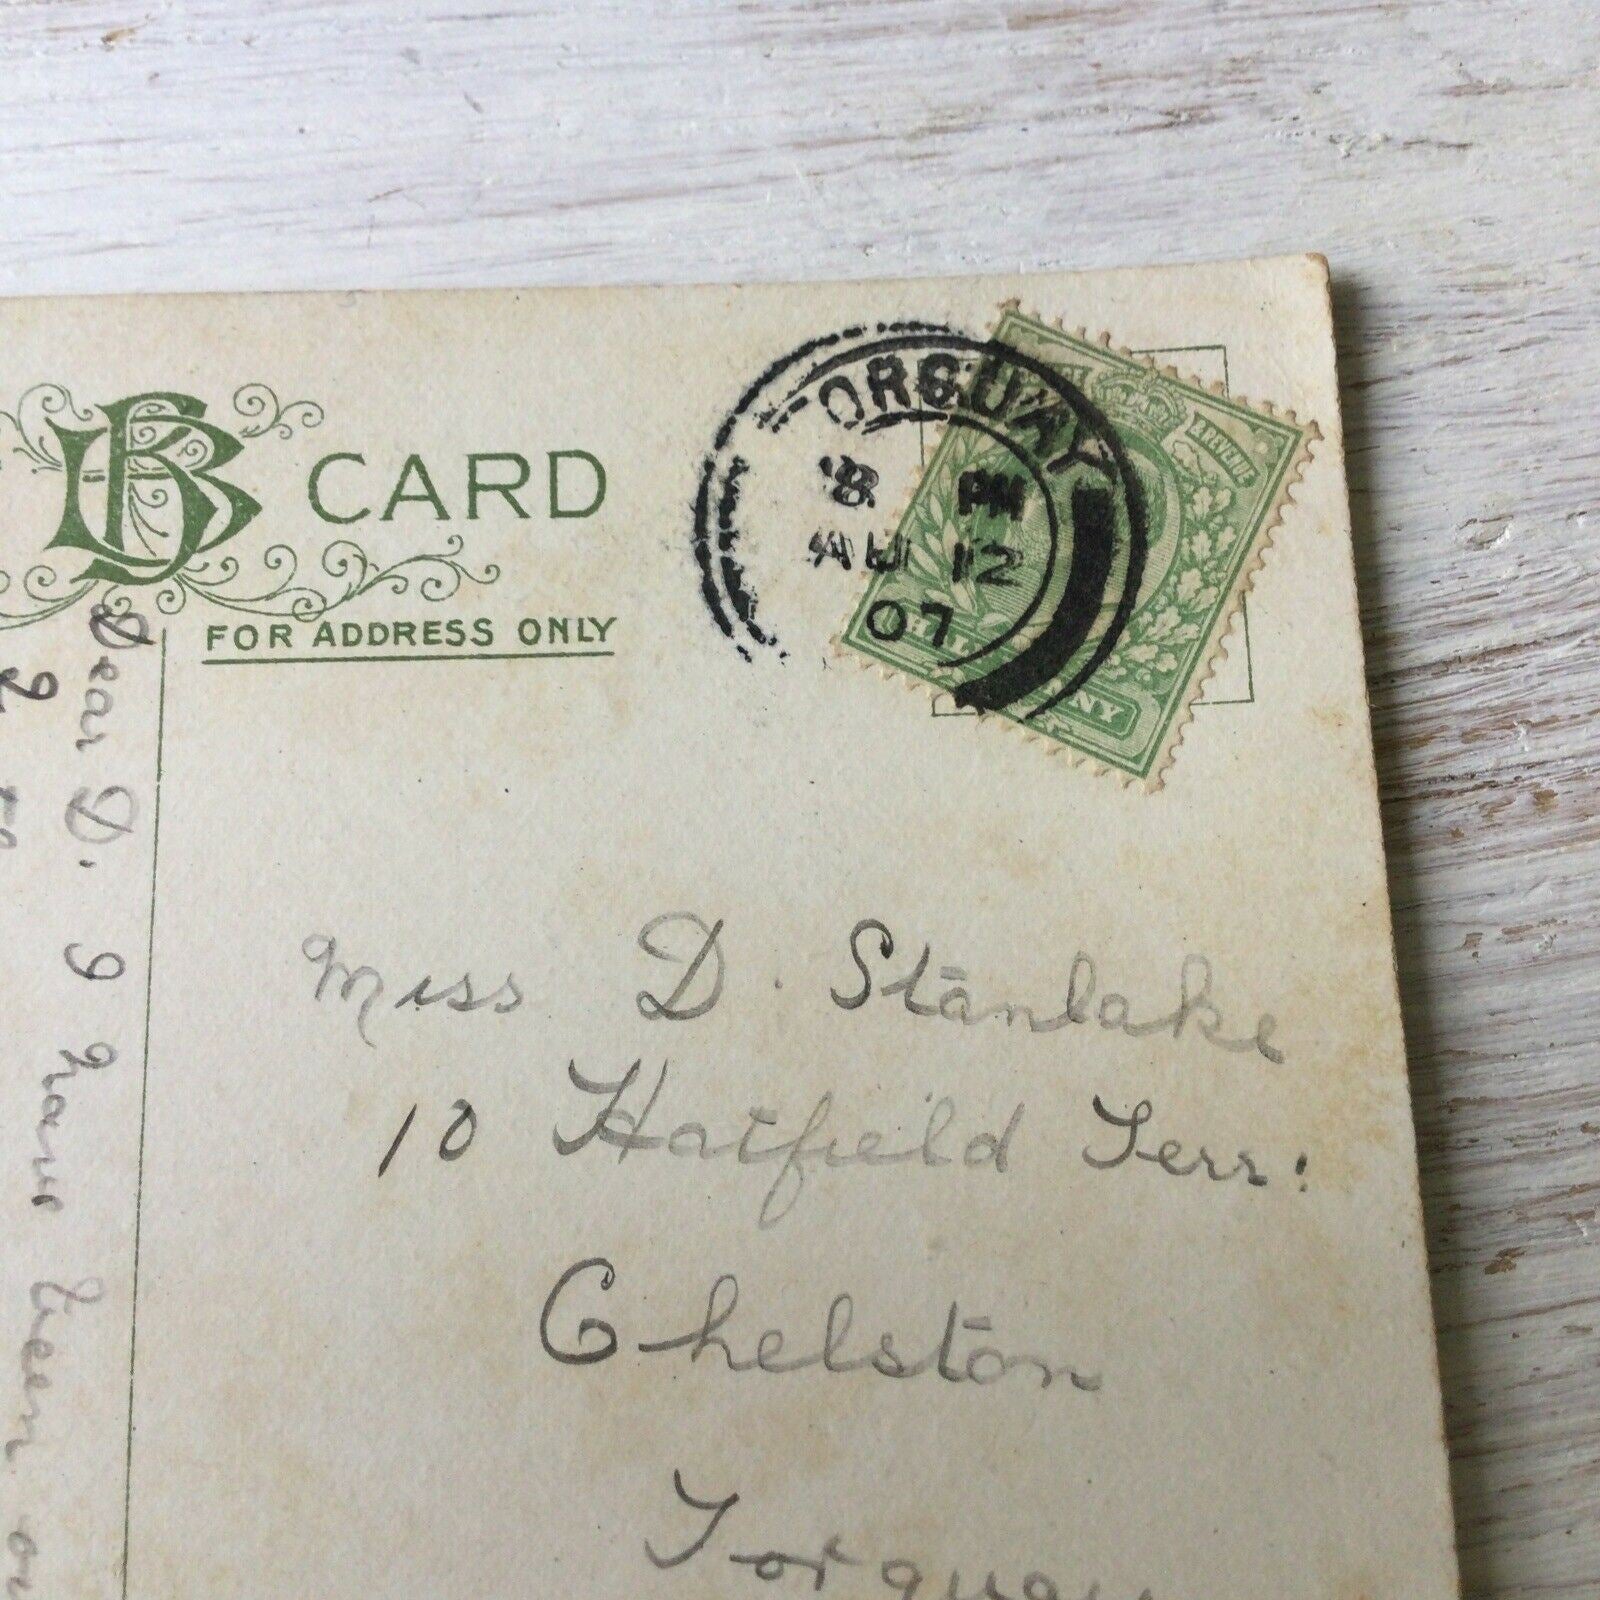 CARD
FOR ADDRESS ONLY
TORQUAY
8 PM
AU 12
07
& REVENUE
HALFPENNY
Miss D. Stanlake
10 Hatfield Terr:
Chelston
Torquay
Dear D. I have been